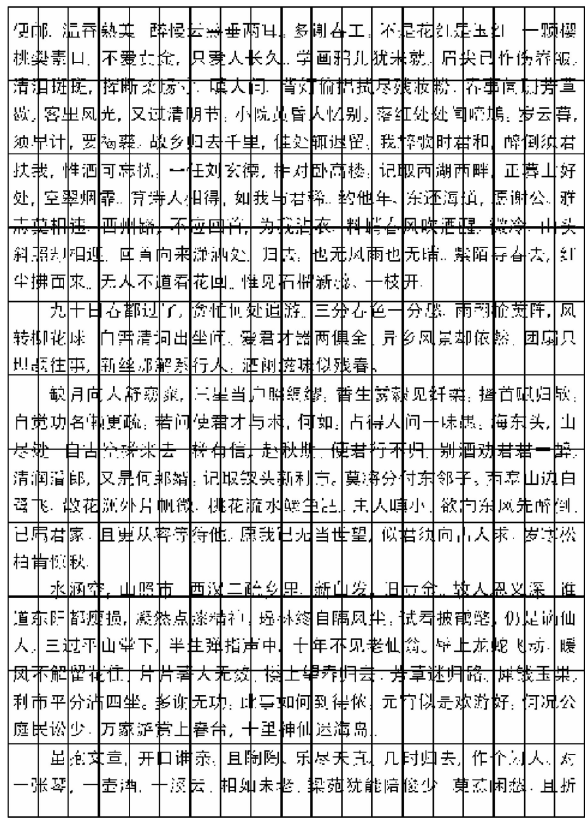 便邮。温香熟美。醉慢云鬟垂两耳。多谢春工。不是花红是玉红。一颗樱
桃樊素口。不爱黄金，只爱人长久。学画鸦儿犹未就。眉尖已作伤春皱。
清泪斑斑，挥断柔肠寸。嗔人问。背灯偷揾拭尽残妆粉。春事阑珊芳草
歇。客里风光，又过清明节。小院黄昏人忆别。落红处处闻啼鴂。岁云暮，
须早计，要褐裘。故乡归去千里，佳处辄迟留。我醉歌时君和，醉倒须君
扶我，惟酒可忘忧。一任刘玄德，相对卧高楼。记取西湖西畔，正暮山好
处，空翠烟霏。算诗人相得，如我与君稀。约他年、东还海道，愿谢公、雅
志莫相违。西州路，不应回首，为我沾衣。料峭春风吹酒醒。微冷。山头
斜照却相迎。回首向来潇洒处。归去。也无风雨也无晴。紫陌寻春去，红
尘拂面来。无人不道看花回。惟见石榴新蕊、一枝开。
九十日春都过了，贪忙何处追游。三分春色一分愁。雨翻榆荚阵，风
转柳花球。白雪清词出坐间。爱君才器两俱全。异乡风景却依然。团扇只
堪题往事，新丝那解系行人。酒阑滋味似残春。
缺月向人舒窈窕，三星当户照绸缪。香生雾縠见纤柔。搔首赋归欤。
自觉功名懒更疏。若问使君才与术，何如。占得人间一味愚。海东头，山
尽处。自古空槎来去。槎有信，赴秋期。使君行不归。别酒劝君君一醉。
清润潘郎，又是何郎婿。记取钗头新利市。莫将分付东邻子。西塞山边白
鹭飞。散花洲外片帆微。桃花流水鳜鱼肥。主人嗔小。欲向东风先醉倒。
已属君家。且更从容等待他。愿我已无当世望，似君须向古人求。岁寒松
柏肯惊秋。
水涵空，山照市。西汉二疏乡里。新白发，旧黄金。故人恩义深。谁
道东阳都瘦损，凝然点漆精神。瑶林终自隔风尘。试看披鹤氅，仍是谪仙
人。三过平山堂下，半生弹指声中。十年不见老仙翁。壁上龙蛇飞动。暖
风不解留花住。片片著人无数。楼上望春归去。芳草迷归路。犀钱玉果。
利市平分沾四坐。多谢无功。此事如何到得侬。元宵似是欢游好。何况公
庭民讼少。万家游赏上春台，十里神仙迷海岛。
虽抱文章，开口谁亲。且陶陶、乐尽天真。几时归去，作个闲人。对
一张琴，一壶酒，一溪云。相如未老。梁苑犹能陪俊少。莫惹闲愁。且折